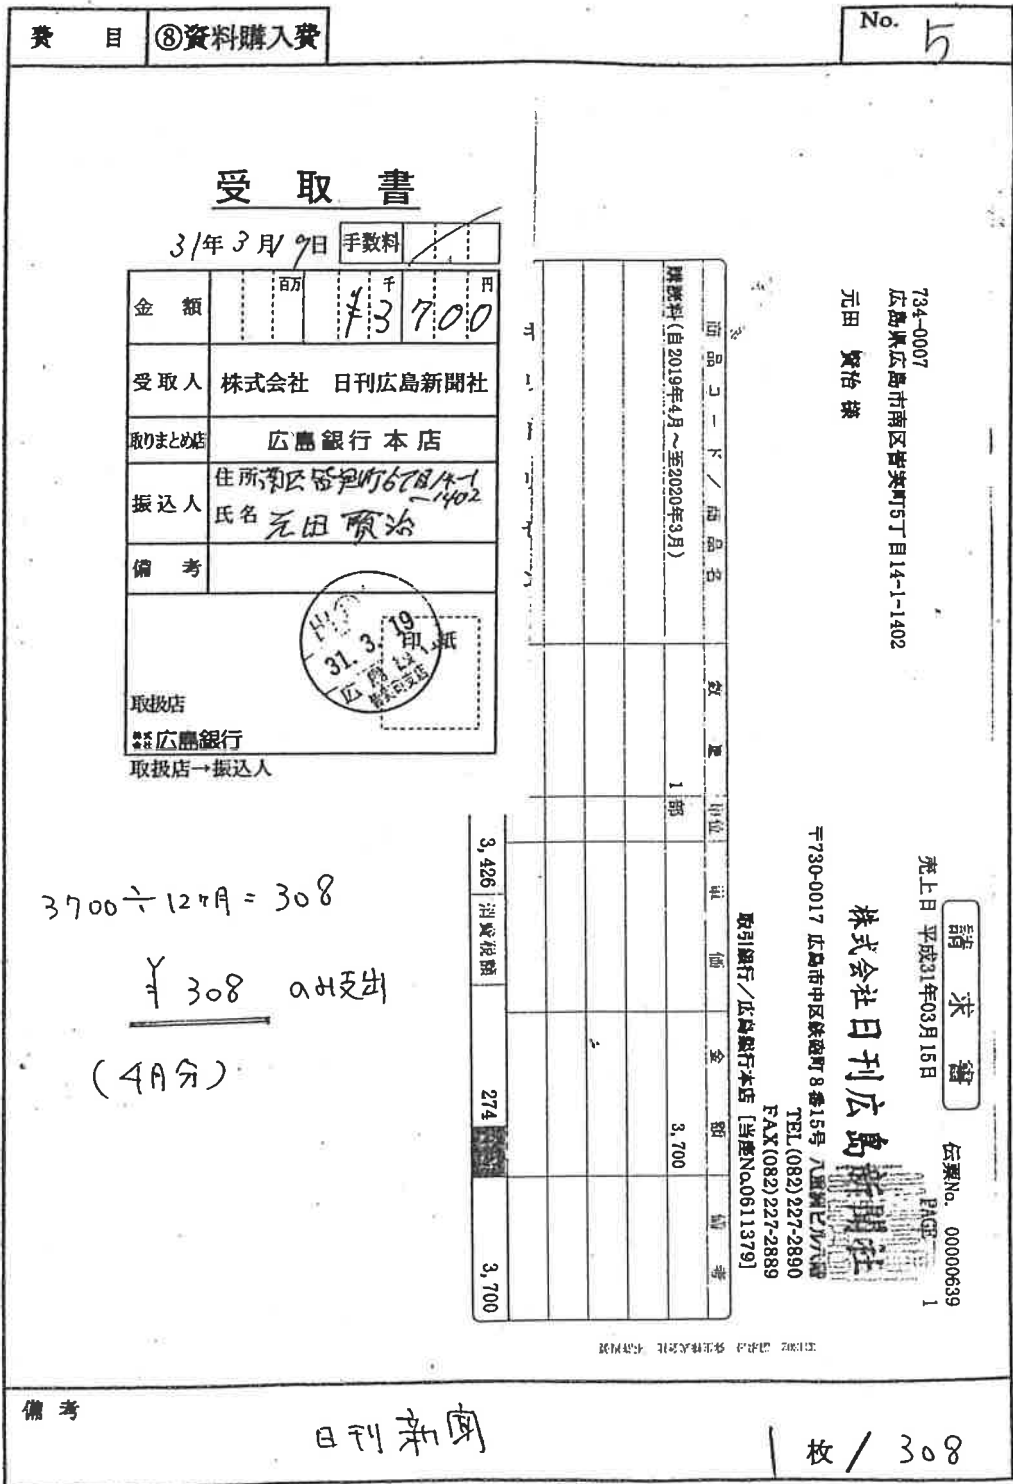 費 目 ⑧資料購入費
No. 5
受 取 書
31年3月19日 手数料
金 額 百万 千 円
¥3700
受取人 株式会社 日刊広島新聞社
取りまとめ店 広島銀行本店
振込人 住所 南区皆実町6丁目14-1
-1402
氏名 元田賢治
備 考
印紙
31.3.19
取扱店
株式会社広島銀行
取扱店→振込人
3700÷12ヶ月=308
¥308 のみ支出
(4月分)
請求書
伝票No. 00000639
PAGE 1
売上日 平成31年03月15日
734-0007
広島県広島市南区皆実町5丁目14-1-1402
元田 賢治 様
株式会社日刊広島新聞社
〒730-0017 広島市中区鉄砲町8番15号 八重洲ビル六階
TEL(082)227-2890
FAX(082)227-2889
取引銀行/広島銀行本店 [当座No.0611379]
商品コード/商品名 数量 単位 単価 金額 備考
購読料(自2019年4月~至2020年3月) 1 部 3,700
3,426 消費税額 274 3,700
備考
日刊新聞
1枚/308